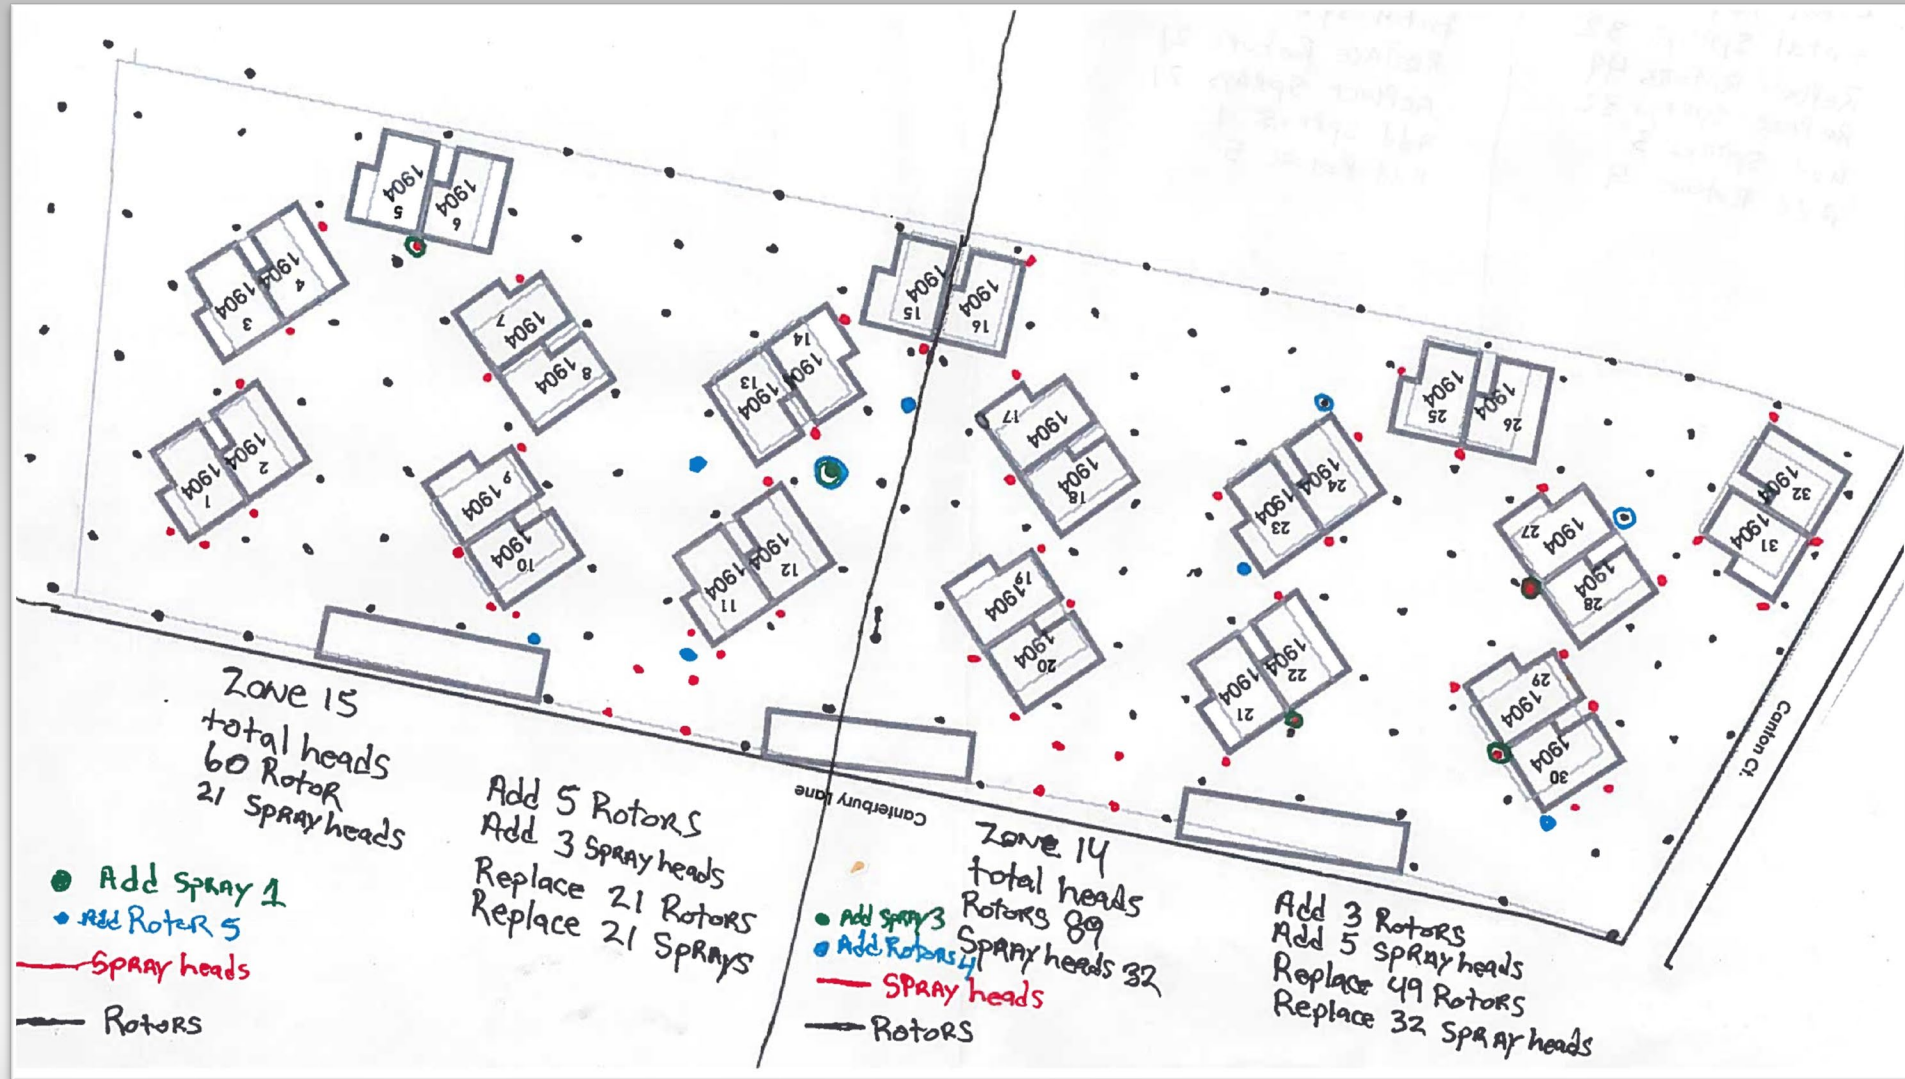 1904 5
1904 6
1904 3
1904 4
1904 7
1904 8
1904 1
1904 2
1904 9
1904 10
1904 13
1904 14
1904 11
1904 12
1904 15
1904 16
1904 17
1904 18
1904 19
1904 20
1904 23
1904 24
1904 21
1904 22
1904 25
1904 26
1904 27
1904 28
1904 29
1904 30
1904 31
1904 32
Canton Ct.
Canterbury Lane
Zone 15
total heads
60 Rotor
21 Spray heads
Add 5 Rotors
Add 3 Spray heads
Replace 21 Rotors
Replace 21 Sprays
Add Spray 1
Add Rotor 5
Spray heads
Rotors
Zone 14
total heads
Rotors 89
Spray heads 32
Add Spray 3
Add Rotors 4
Spray heads
Rotors
Add 3 Rotors
Add 5 Spray heads
Replace 49 Rotors
Replace 32 Spray heads